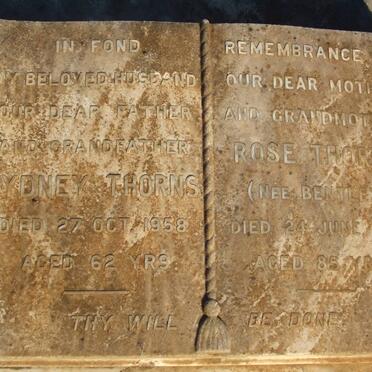 IN FOND
MY BELOVED HUSBAND
OUR DEAR FATHER
AND GRANDFATHER
SYDNEY THORNS
DIED 27 OCT 1958
AGED 62 YRS
THY WILL
REMEMBRANCE
OUR DEAR MOT
AND GRANDMOT
ROSE THO
(NEE BENTLE
DIED 24 JUNE
AGED 85
BE DONE